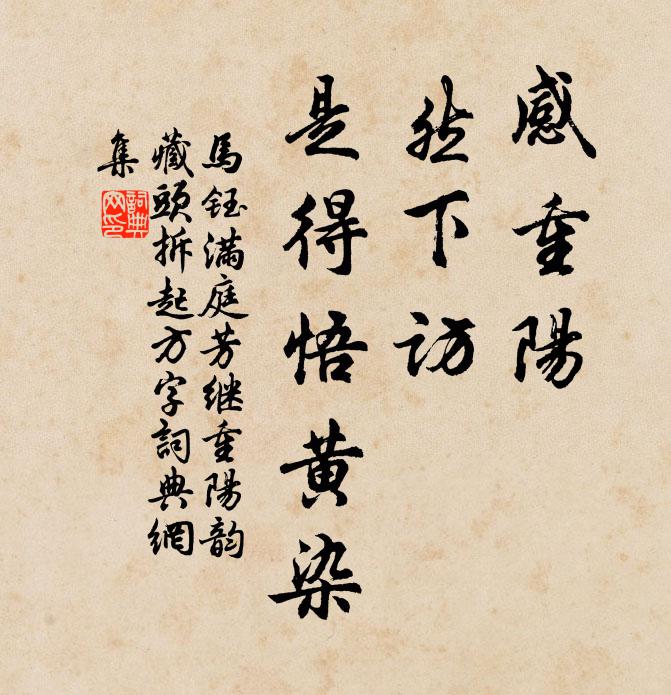 感重陽
然下訪
是得悟黄染
馬鈺满庭芳继重陽韵
藏頭拆起方字詞典網
集
詞典
网印